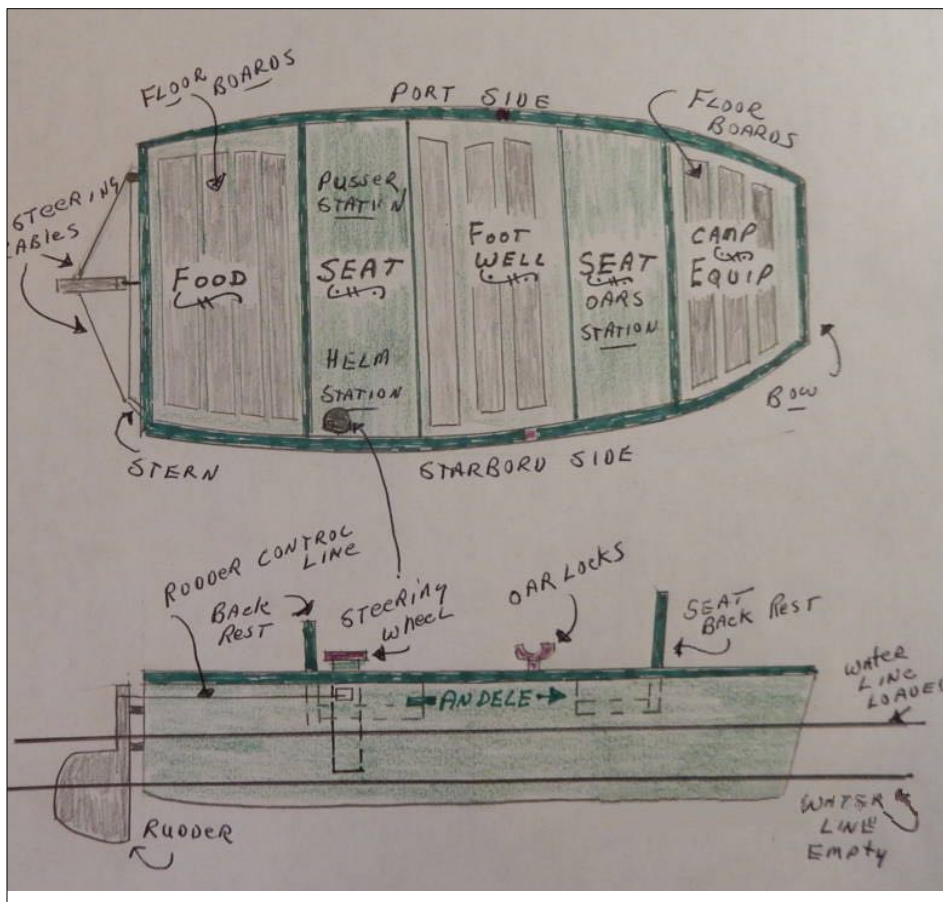 FLOOR BOARDS
PORT SIDE
FLOOR
BOARDS
STEERING
CABLES
PUSSER
STATION
FOOD
SEAT
FOOT
WELL
SEAT
OARS
STATION
CAMP
EQUIP
HELM
STATION
BOW
STERN
STARBORD SIDE
RUDDER CONTROL
LINE
BACK
REST
STEERING
WHEEL
OAR LOCKS
SEAT
BACK REST
WATER
LINE
LOADED
ANDELE
RUDDER
WATER
LINE
EMPTY